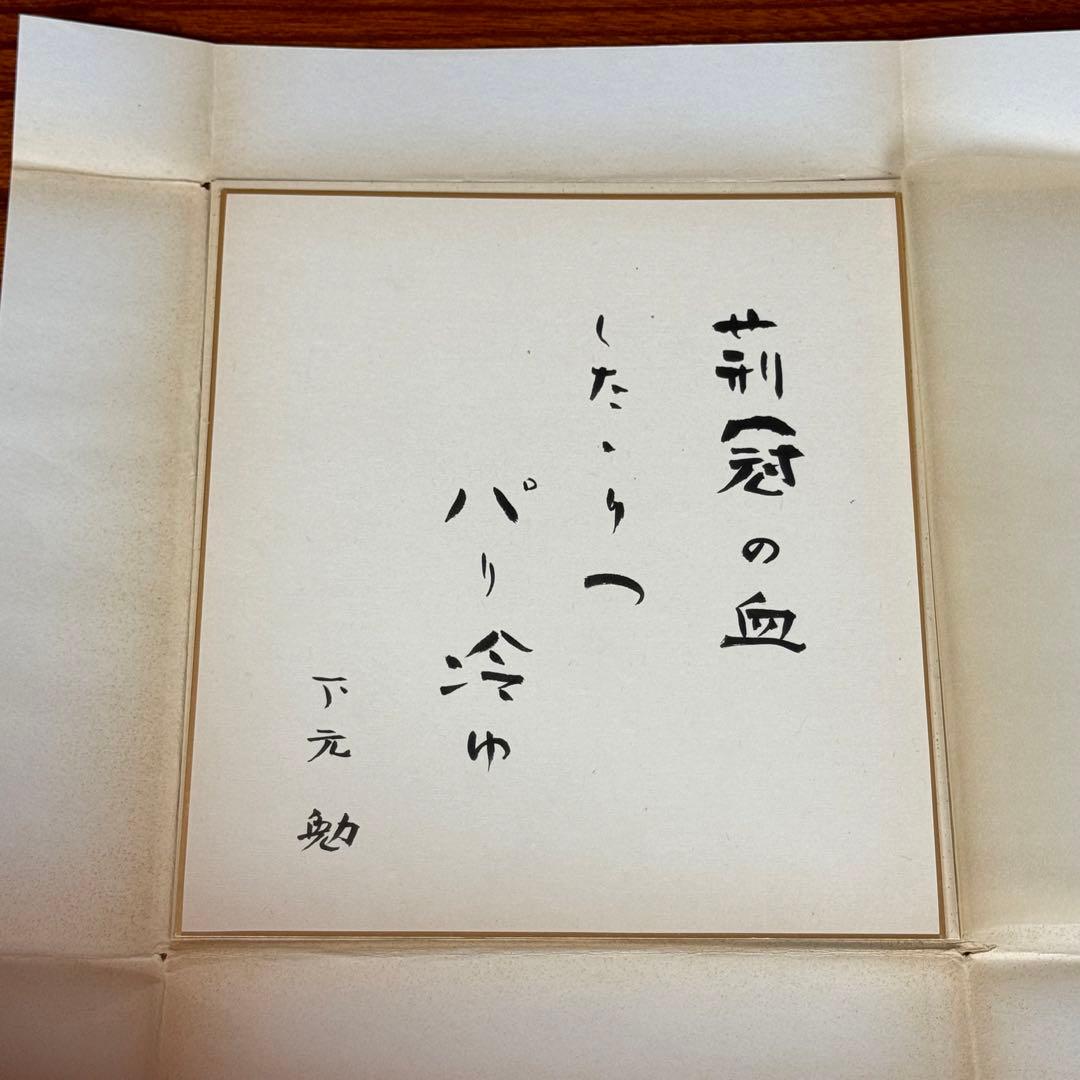 荊冠の血
したゝりつ
パリ冷ゆ
下元 勉